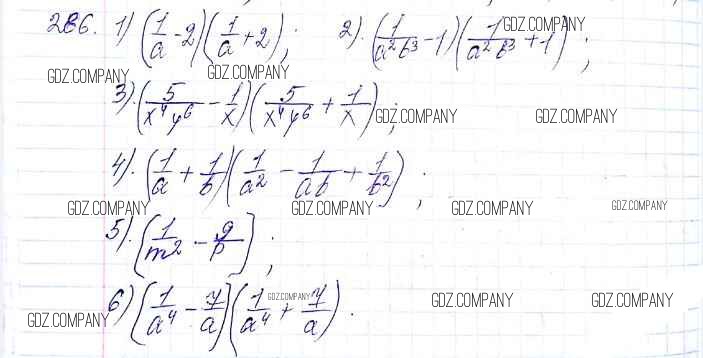 286. 1) (1/a - 2)(1/a + 2); 2). (1/a²b³ - 1)(1/a²b³ + 1);
GDZ.COMPANY
GDZ.COMPANY GDZ.COMPANY
3). (5/x⁴y⁶ - 1/x)(5/x⁴y⁶ + 1/x);
GDZ.COMPANY GDZ.COMPANY GDZ.COMPANY
4). (1/a + 1/b)(1/a² - 1/ab + 1/b²);
GDZ.COMPANY GDZ.COMPANY GDZ.COMPANY GDZ.COMPANY
5). [1/m² - 9/p];
6) (1/a⁴ - 7/a)(1/a⁴ + 7/a).
GDZ.COMPANY GDZ.COMPANY GDZ.COMPANY
GDZ.COMPANY